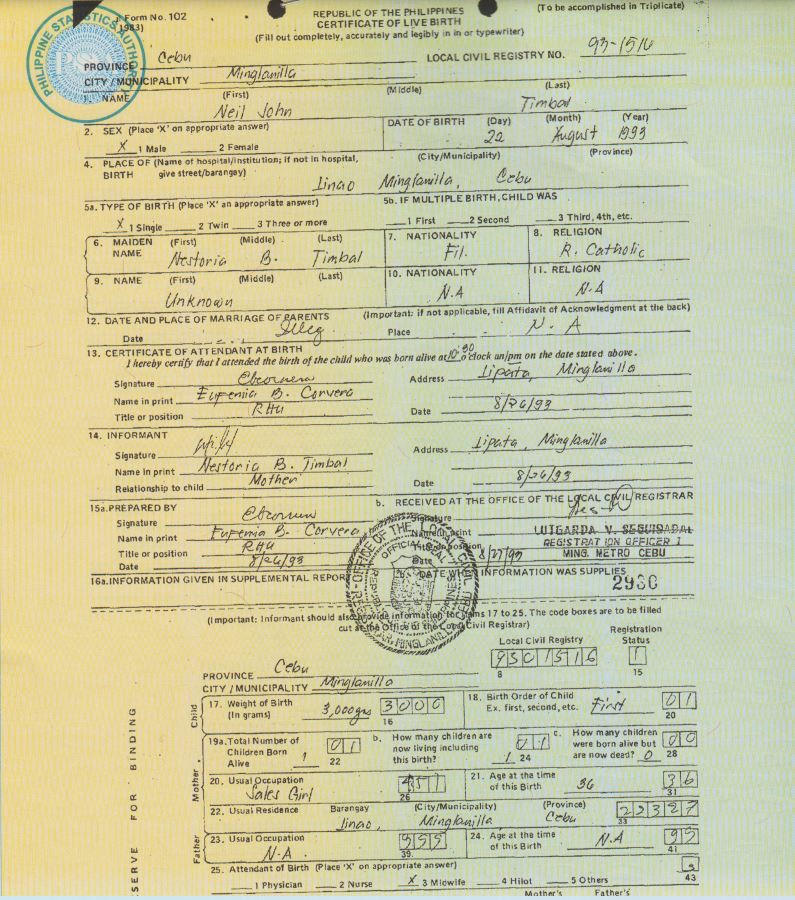 Form No. 102
1983)
REPUBLIC OF THE PHILIPPINES
(To be accomplished in Triplicate)
CERTIFICATE OF LIVE BIRTH
(Fill out completely, accurately and legibly in in or typewriter)
PHILIPPINE STATISTICS AUTHORITY
PROVINCE Cebu
LOCAL CIVIL REGISTRY NO. 93-1516
CITY / MUNICIPALITY Minglanilla
1. NAME (First) (Middle) (Last)
Neil John Timbal
2. SEX (Place 'X' on appropriate answer) DATE OF BIRTH (Day) (Month) (Year)
X 1 Male 2 Female 22 August 1993
4. PLACE OF (Name of hospital/institution; if not in hospital, (City/Municipality) (Province)
BIRTH give street/barangay)
Linao Minglanilla, Cebu
5a. TYPE OF BIRTH (Place 'X' on appropriate answer) 5b. IF MULTIPLE BIRTH, CHILD WAS
X 1 Single 2 Twin 3 Three or more 1 First 2 Second 3 Third, 4th, etc.
6. MAIDEN (First) (Middle) (Last) 7. NATIONALITY 8. RELIGION
NAME Nestoria B. Timbal Fil. R. Catholic
9. NAME (First) (Middle) (Last) 10. NATIONALITY 11. RELIGION
Unknown N.A N.A
12. DATE AND PLACE OF MARRIAGE OF PARENTS (Important: if not applicable, fill Affidavit of Acknowledgment at the back)
Date Illeg Place N. A
13. CERTIFICATE OF ATTENDANT AT BIRTH
I hereby certify that I attended the birth of the child who was born alive at 10:30 o'clock am/pm on the date stated above.
Signature Address Lipata, Minglanilla
Name in print Eufemia B. Corvera
Title or position RHU Date 8/26/93
14. INFORMANT
Signature Address Lipata, Minglanilla
Name in print Nestoria B. Timbal
Relationship to child Mother Date 8/26/93
15a. PREPARED BY b. RECEIVED AT THE OFFICE OF THE LOCAL CIVIL REGISTRAR
Signature Signature
Name in print Eufemia B. Corvera Name in print LUIGARDA V. SEGUISABAL
Title or position RHU Title or position REGISTRATION OFFICER I
Date 8/26/93 Date 8/27/93 MING. METRO CEBU
16a. INFORMATION GIVEN IN SUPPLEMENTAL REPORT 16b. DATE WHEN INFORMATION WAS SUPPLIED
2930
(Important: Informant should also provide information for items 17 to 25. The code boxes are to be filled
cut at the Office of the Local Civil Registrar)
Local Civil Registry Registration Status
9301516 1
8 15
PROVINCE Cebu
CITY / MUNICIPALITY Minglanilla
Child
17. Weight of Birth 3,000 gms 3000 18. Birth Order of Child First 01
(In grams) 16 Ex. first, second, etc. 20
19a. Total Number of 01 b. How many children are 01 c. How many children 00
Children Born now living including were born alive but
Alive 1 22 this birth? 1 24 are now dead? 0 28
Mother
20. Usual Occupation 451 21. Age at the time 36 36
Sales Girl 26 of this Birth 31
22. Usual Residence Barangay (City/Municipality) (Province) 22327
Linao, Minglanilla Cebu 33
Father
23. Usual Occupation 999 24. Age at the time N.A 99
N.A. 39 of this Birth 41
25. Attendant of Birth (Place 'X' on appropriate answer) 3
1 Physician 2 Nurse X 3 Midwife 4 Hilot 5 Others 43
Mother's Father's
SERVE FOR BINDING